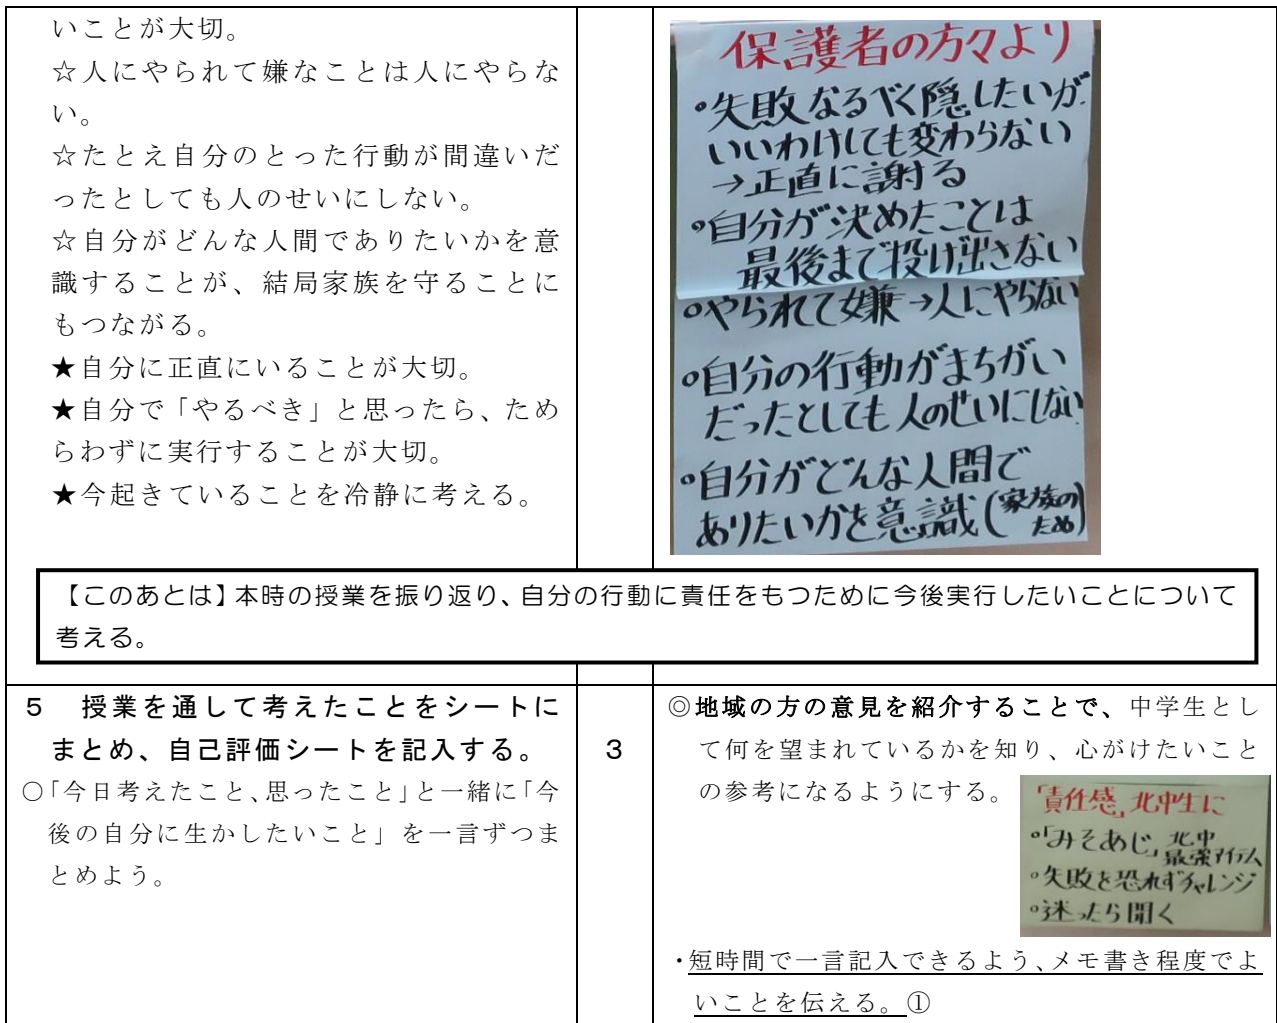 いことが大切。
☆人にやられて嫌なことは人にやらな
い。
☆たとえ自分のとった行動が間違いだ
ったとしても人のせいにしない。
☆自分がどんな人間でありたいかを意
識することが、結局家族を守ることに
もつながる。
★自分に正直にいることが大切。
★自分で「やるべき」と思ったら、ため
らわずに実行することが大切。
★今起きていることを冷静に考える。
保護者の方々より
・失敗なるべく隠したいが
いいわけしても変わらない
→正直に謝る
・自分が決めたことは
最後まで投げ出さない
・やられて嫌→人にやらない
・自分の行動がまちがい
だったとしても人のせいにしない
・自分がどんな人間で
ありたいかを意識(家族の
ため)
【このあとは】本時の授業を振り返り、自分の行動に責任をもつために今後実行したいことについて
考える。
5 授業を通して考えたことをシートに
まとめ、自己評価シートを記入する。
○「今日考えたこと、思ったこと」と一緒に「今
後の自分に生かしたいこと」を一言ずつま
とめよう。
3
◎地域の方の意見を紹介することで、中学生とし
て何を望まれているかを知り、心がけたいこと
の参考になるようにする。
「責任感」北中生に
・「みそあじ」北中
最強アイテム
・失敗を恐れずチャレンジ
・迷ったら聞く
・短時間で一言記入できるよう、メモ書き程度でよ
いことを伝える。①